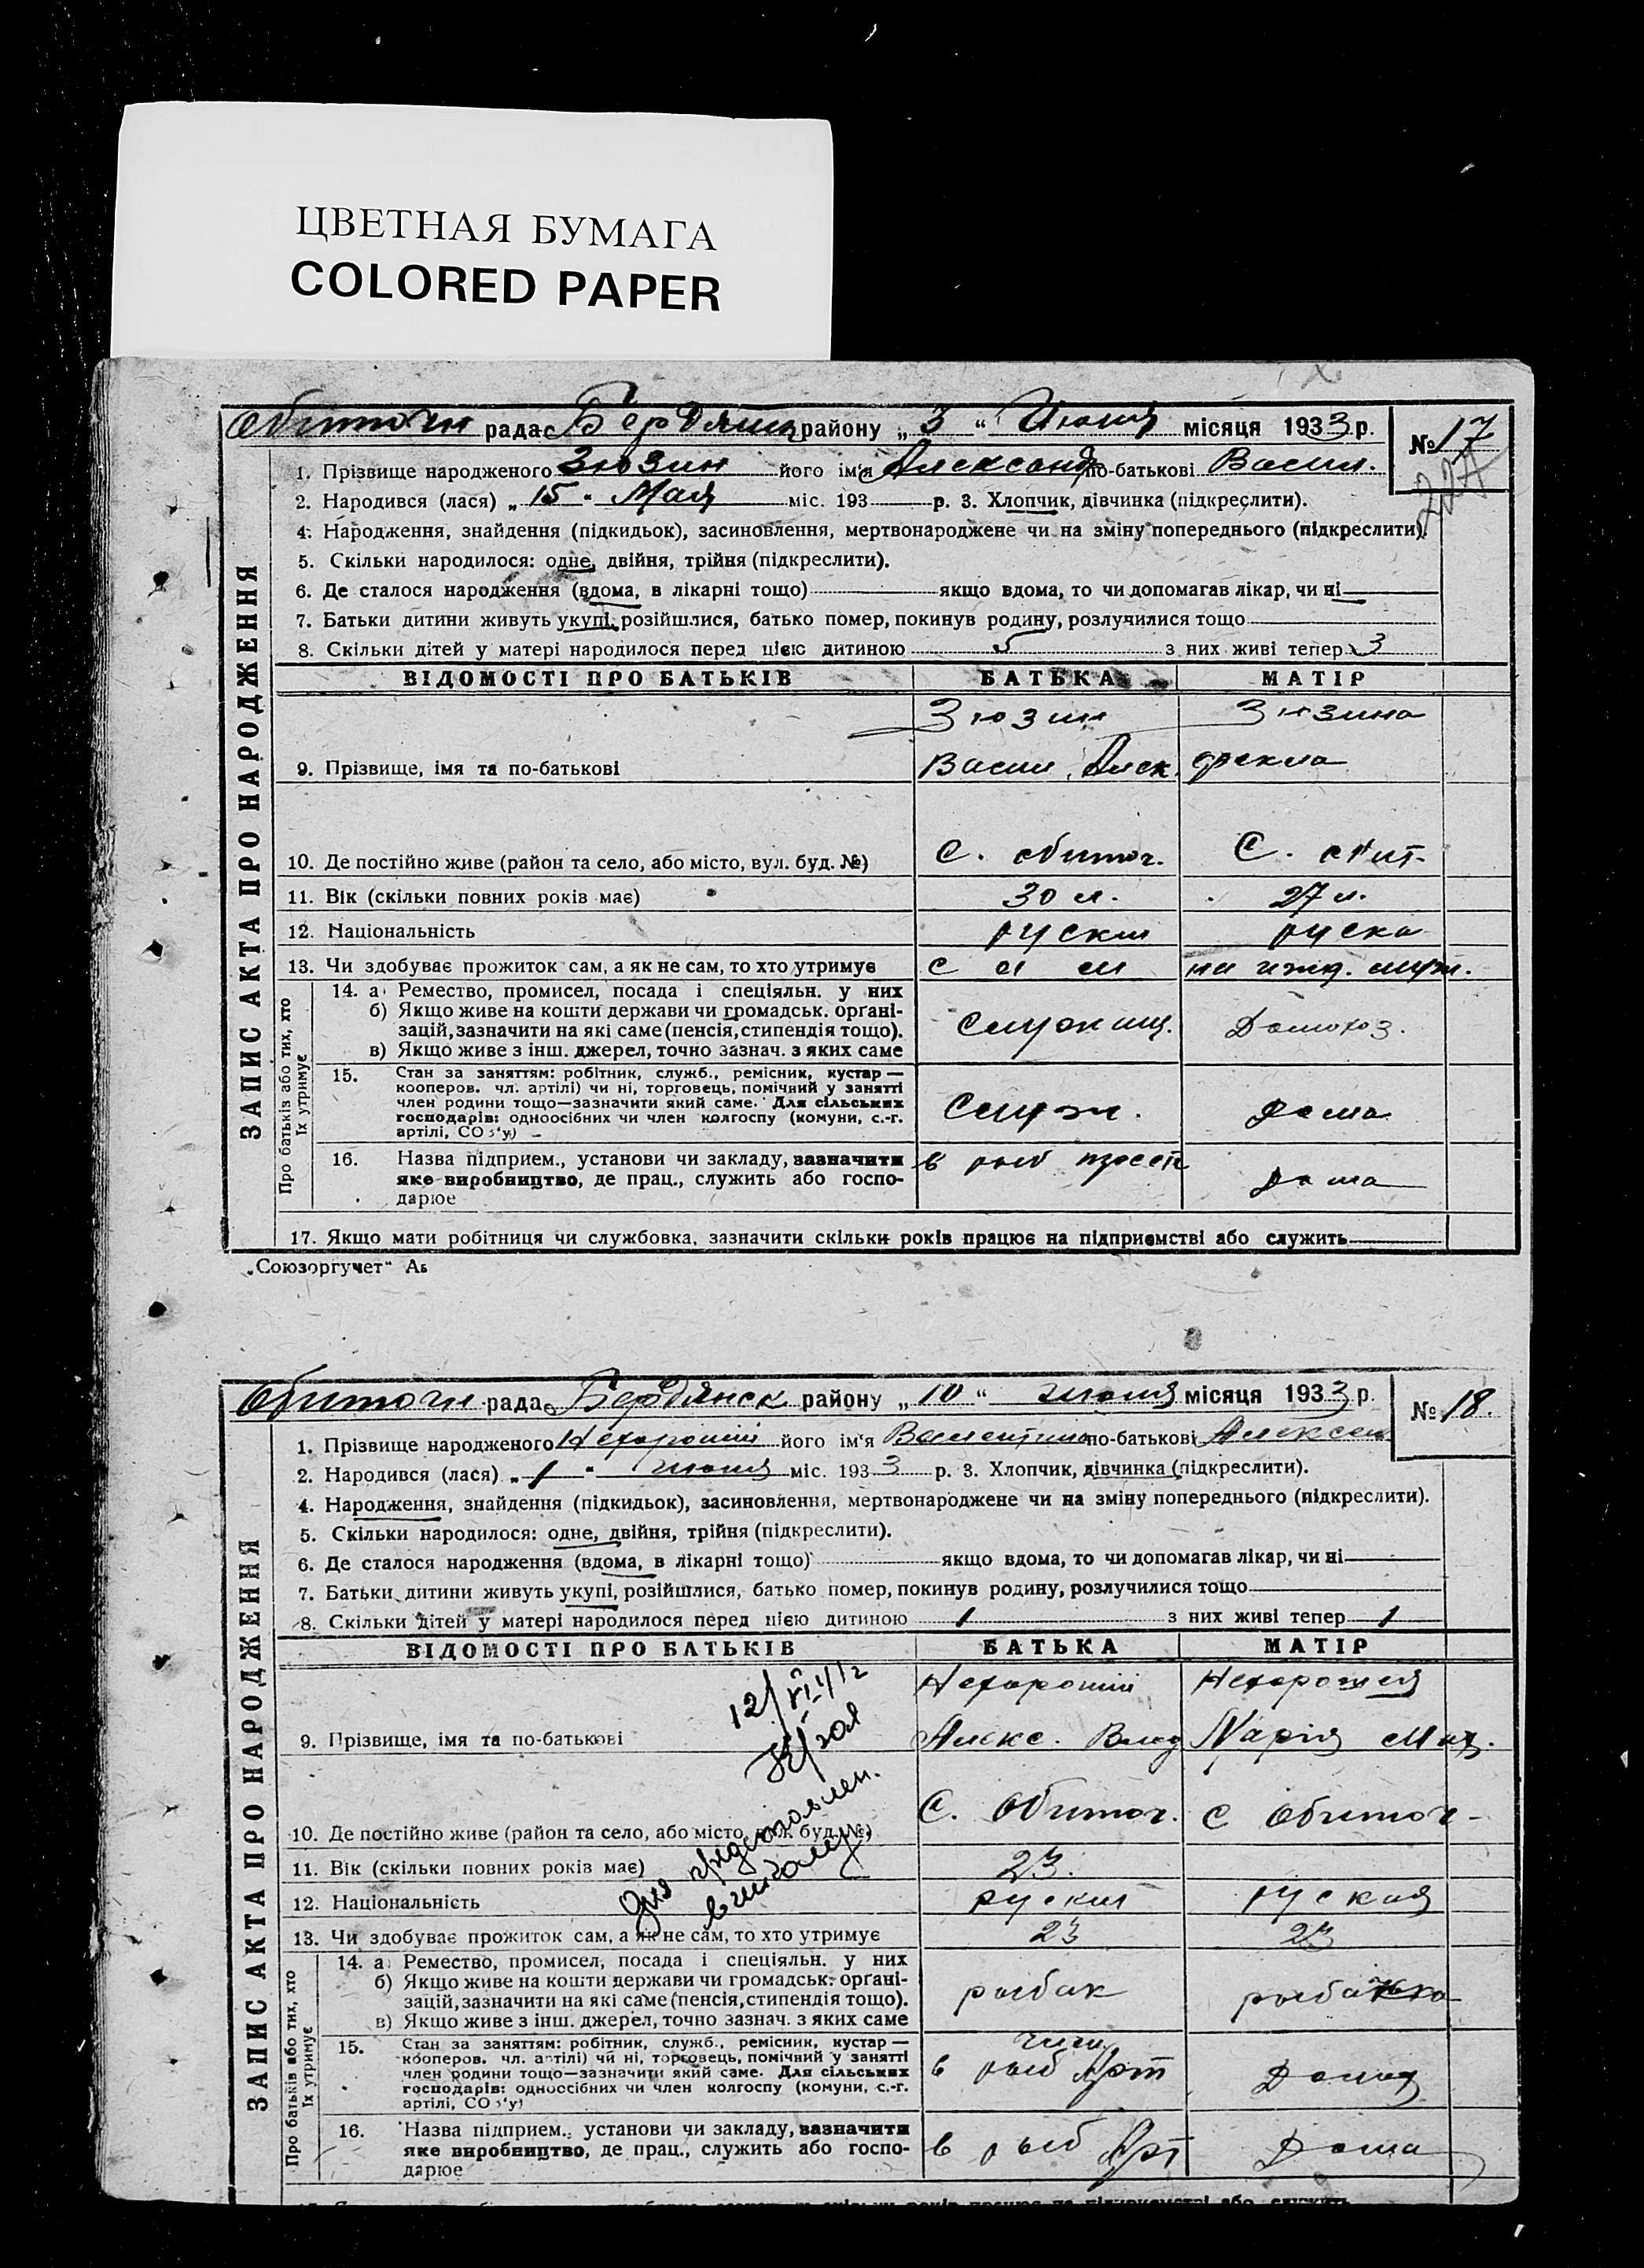 ЦВЕТНАЯ БУМАГА
COLORED PAPER
Обиточн рада Бердянск району „3“ Июня місяця 1933 р. № 17
1. Прізвище народженого Зюзин його ім'я Александр по-батькові Васил.
2. Народився (лася) „15“ Мая міс. 193 р. 3. Хлопчик, дівчинка (підкреслити).
4. Народження, знайдення (підкидьок), засиновлення, мертвонароджене чи на зміну попереднього (підкреслити).
5. Скільки народилося: одне, двійня, трійня (підкреслити).
6. Де сталося народження (вдома, в лікарні тощо) якщо вдома, то чи допомагав лікар, чи ні
7. Батьки дитини живуть укупі, розійшлися, батько помер, покинув родину, розлучилися тощо
8. Скільки дітей у матері народилося перед цією дитиною 5 з них живі тепер 3
ЗАПИС АКТА ПРО НАРОДЖЕННЯ
ВІДОМОСТІ ПРО БАТЬКІВ БАТЬКА МАТІР
Зюзин Зюзина
9. Прізвище, імя та по-батькові Васил. Алек. фекла
10. Де постійно живе (район та село, або місто, вул. буд. №) С. обиточ. С. обит.
11. Вік (скільки повних років має) 30 л. 27 л.
12. Національність руский руска
13. Чи здобуває прожиток сам, а як не сам, то хто утримує сам на ижд. муж.
Про батьків або тих, хто їх утримує
14. а) Ремество, промисел, посада і спеціяльн. у них
б) Якщо живе на кошти держави чи громадськ. орґані-
зацій, зазначити на які саме (пенсія, стипендія тощо). Служащ. Домохоз.
в) Якщо живе з інш. джерел, точно зазнач. з яких саме
15. Стан за заняттям: робітник, служб., ремісник, кустар —
кооперов. чл. артілі) чи ні, торговець, помічний у занятті
член родини тощо—зазначити який саме. Для сільських
господарів: одноосібних чи член колгоспу (комуни, с.-г. Служ. дома
артілі, СОЗ'у)
16. Назва підприєм., установи чи закладу, зазначити в рыб
яке виробництво, де прац., служить або госпо- дома
дарює
17. Якщо мати робітниця чи службовка, зазначити скільки років працює на підприємстві або служить
„Союзоргучет“
Обиточн рада Бердянск району „10“ июня місяця 1933 р. № 18.
1. Прізвище народженого Нехороший його ім'я Валентина по-батькові Алексеи
2. Народився (лася) „1“ июня міс. 1933 р. 3. Хлопчик, дівчинка (підкреслити).
4. Народження, знайдення (підкидьок), засиновлення, мертвонароджене чи на зміну попереднього (підкреслити).
5. Скільки народилося: одне, двійня, трійня (підкреслити).
6. Де сталося народження (вдома, в лікарні тощо) якщо вдома, то чи допомагав лікар, чи ні
7. Батьки дитини живуть укупі, розійшлися, батько помер, покинув родину, розлучилися тощо
8. Скільки дітей у матері народилося перед цією дитиною 1 з них живі тепер 1
ЗАПИС АКТА ПРО НАРОДЖЕННЯ
ВІДОМОСТІ ПРО БАТЬКІВ БАТЬКА МАТІР
Нехороший Нехорошая
9. Прізвище, імя та по-батькові Алекс. Влад Марія Мих.
10. Де постійно живе (район та село, або місто, вул. буд. №) С. Обиточ. С Обиточ
11. Вік (скільки повних років має) 23.
12. Національність руский руския
13. Чи здобуває прожиток сам, а як не сам, то хто утримує 23 23
Про батьків або тих, хто їх утримує
14. а) Ремество, промисел, посада і спеціяльн. у них
б) Якщо живе на кошти держави чи громадськ. орґані-
зацій, зазначити на які саме (пенсія, стипендія тощо). рыбак рыбачка
в) Якщо живе з інш. джерел, точно зазнач. з яких саме
15. Стан за заняттям: робітник, служб., ремісник, кустар — член
кооперов. чл. артілі) чи ні, торговець, помічний у занятті в рыб Арт
член родини тощо—зазначити який саме. Для сільських
господарів: одноосібних чи член колгоспу (комуни, с.-г.
артілі, СОЗ'у)
16. Назва підприєм., установи чи закладу, зазначити
яке виробництво, де прац., служить або госпо- в рыб Арт Дома
дарює